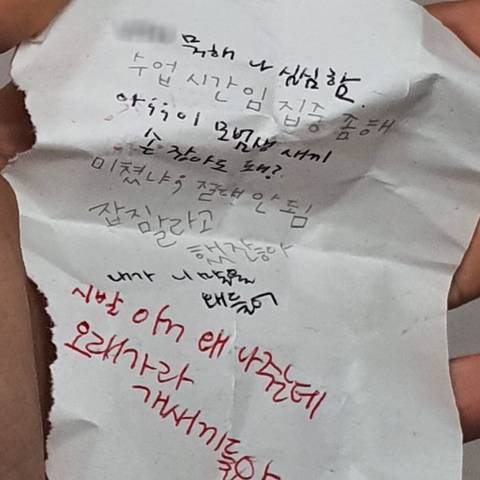 뭐해 나 심심함.
수업 시간임 집중 좀해
아휴이 모범생 새끼
손 잡아도 돼?
미쳤냐; 절대 안 됨
잡지말라고
했잖아
내가 니 말을
왜들어
시발 아니 왜 나줌데
오래가라
개새끼들아